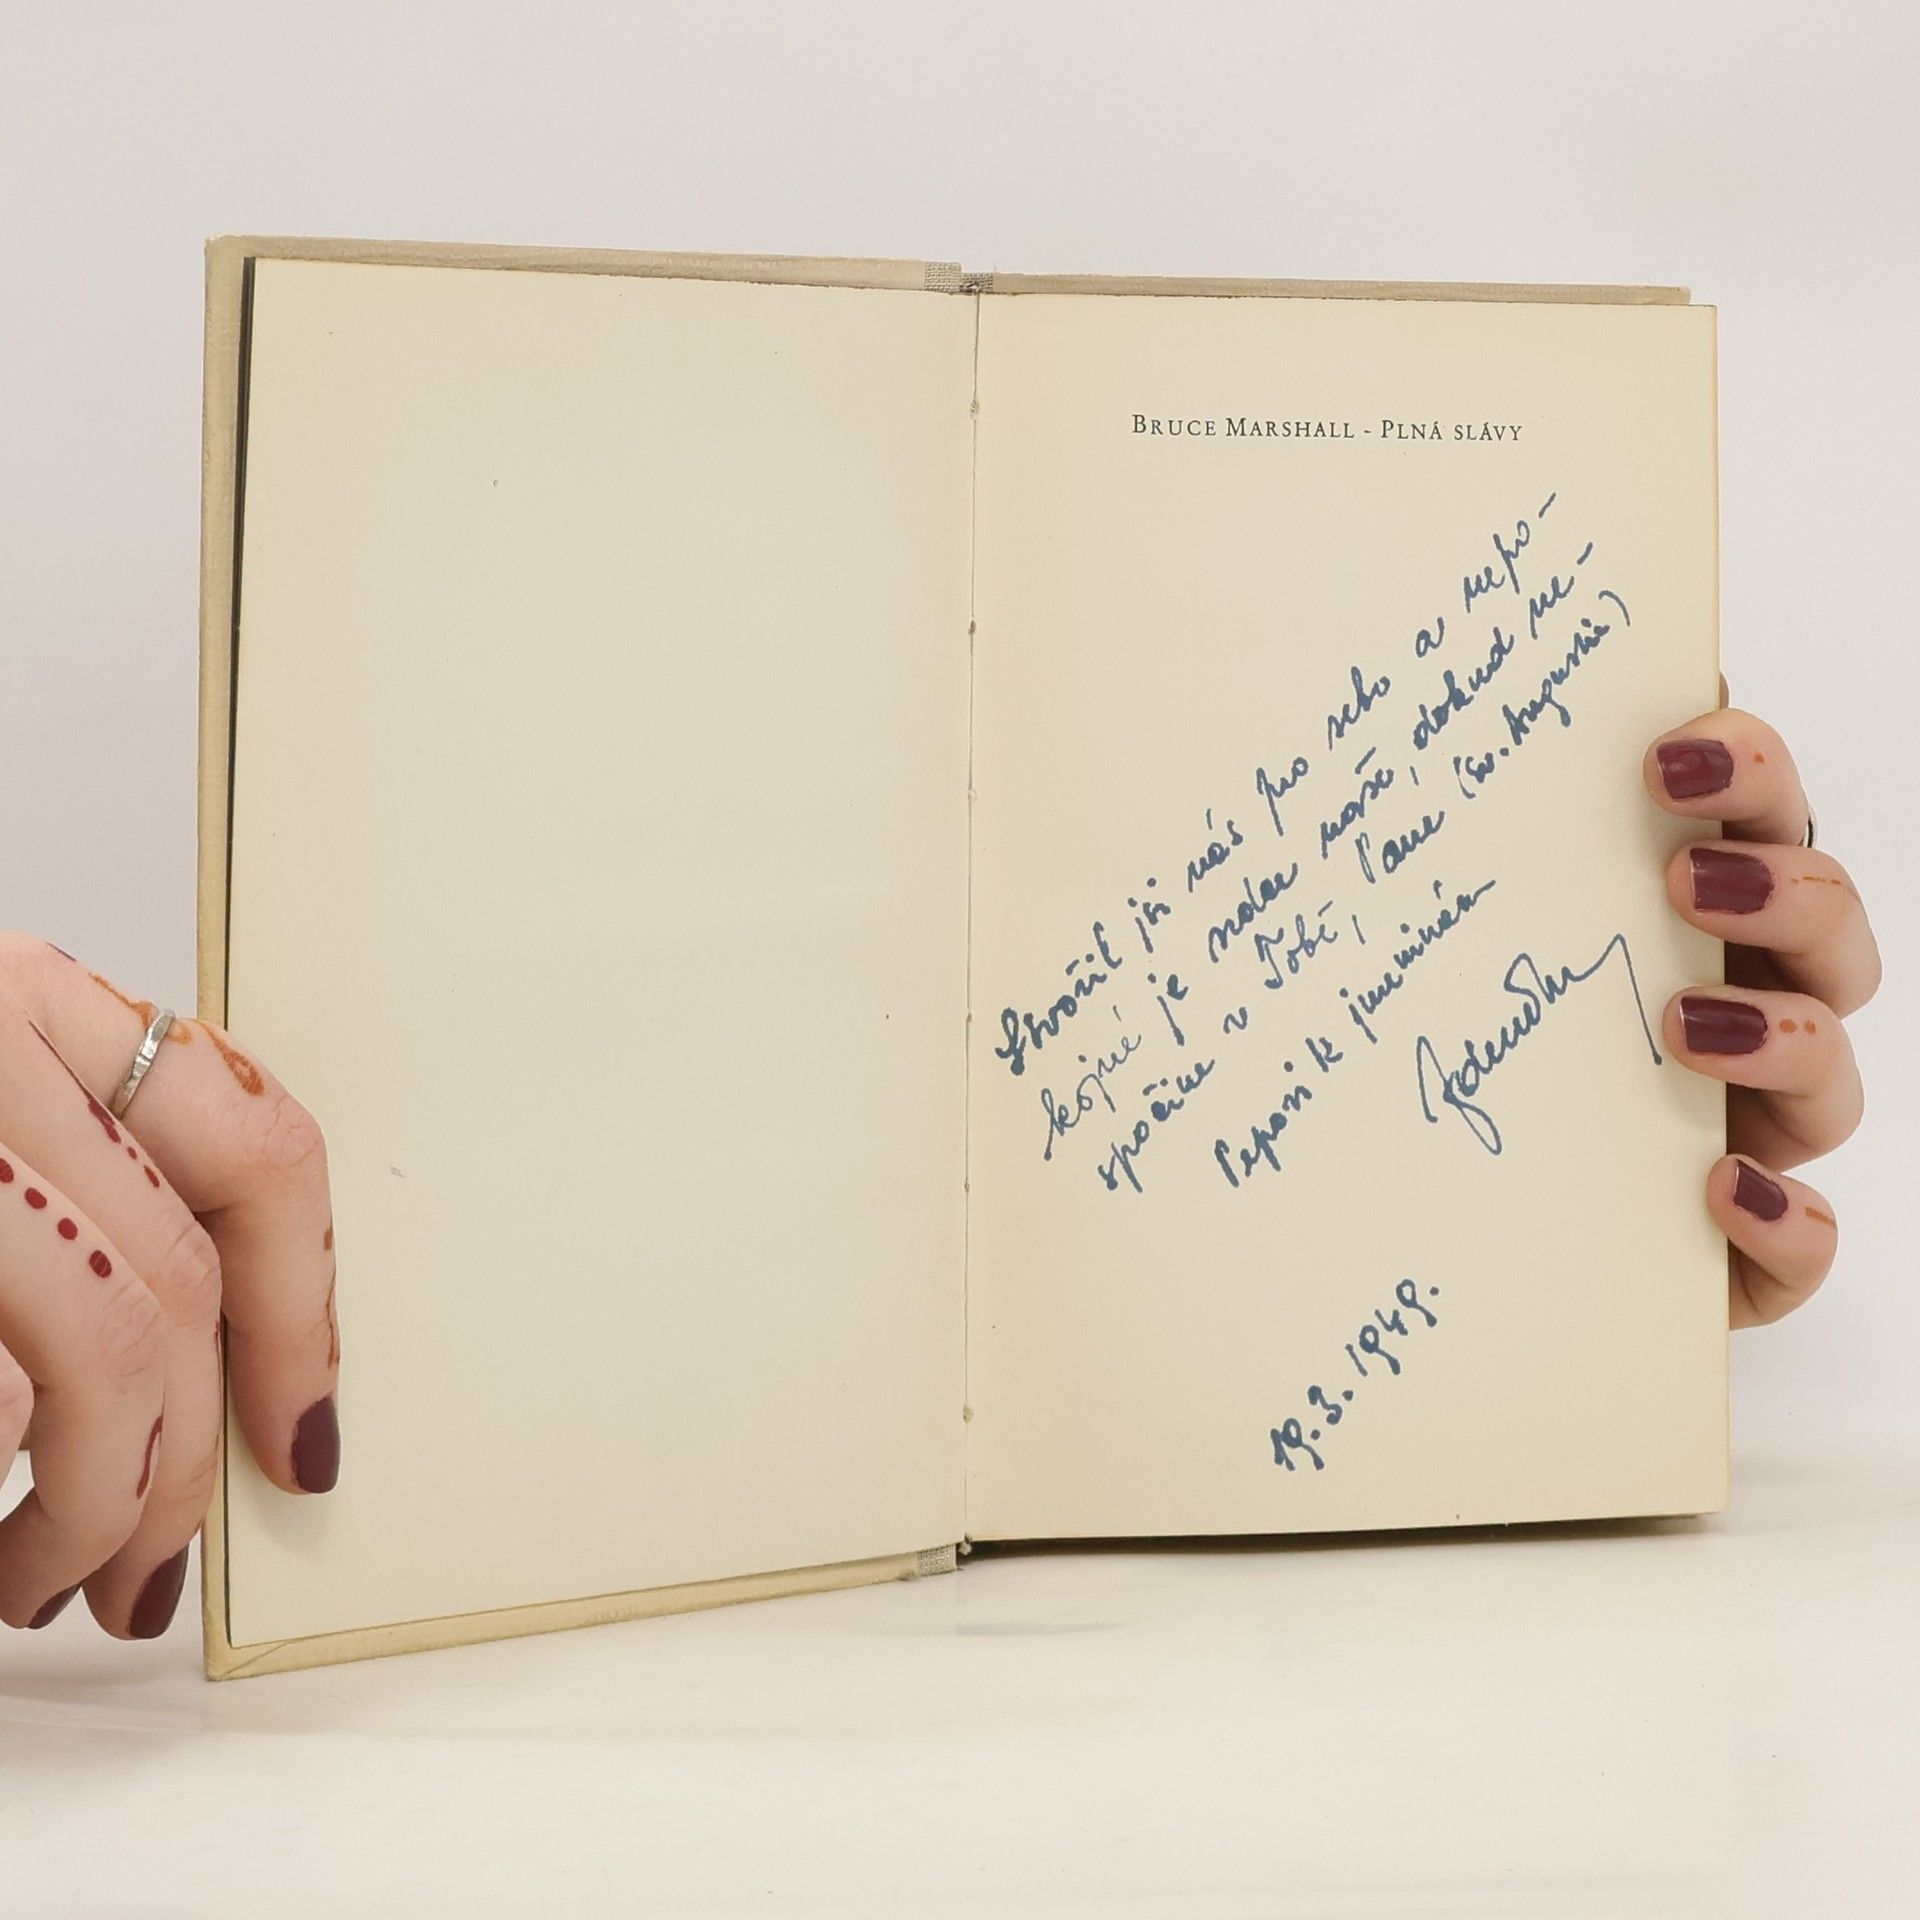 BRUCE MARSHALL - PLNÁ SLÁVY
Stvořil jsi nás pro sebe a nepo-
kojné je srdce naše, dokud ne-
spočine v Tobě, Pane (sv. Augustin)
Pepovi k jmeninám
Zdeněk
19.3.1949.